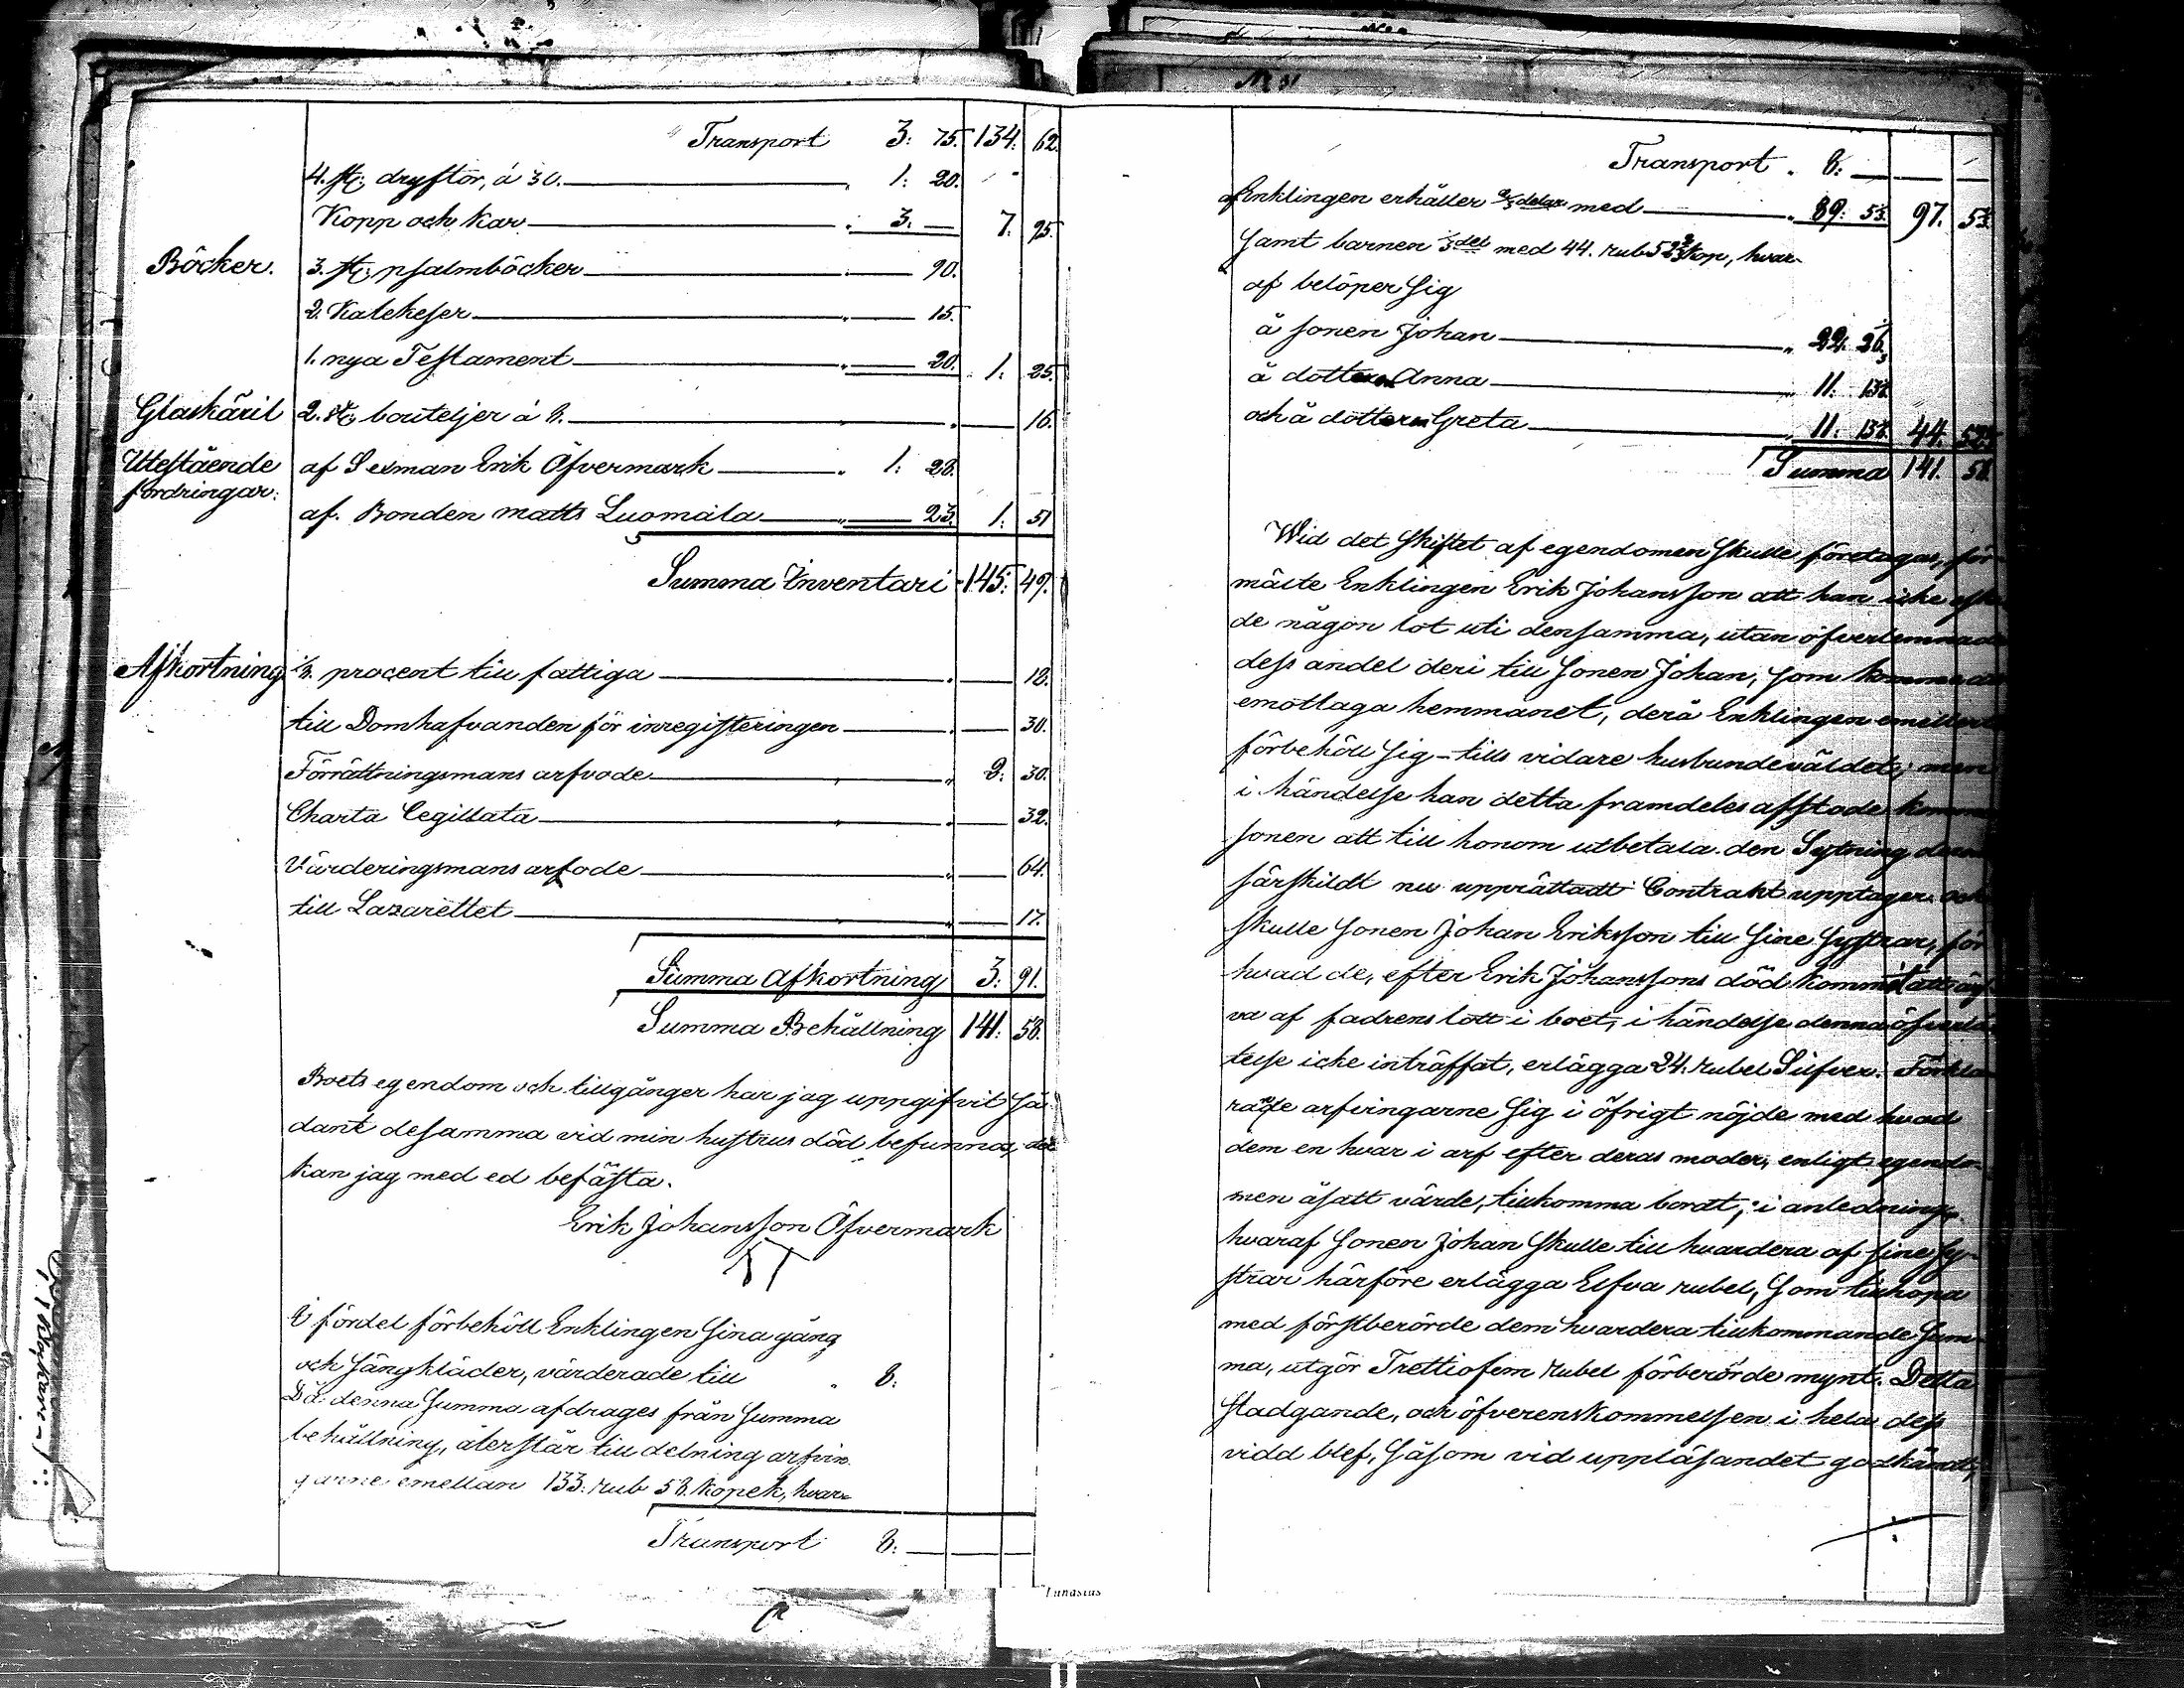 Transport 3: 75. 134: 62.
4. st; dryftor, á 30. 1: 20.
Kopp och kar 3. — 7. 95.
Böcker. 3. st; psalmböcker 90.
2. Katekeser 15.
1. nya Testament 20. 1: 25.
Glaskäril 2. st; bouteljer á 8. 16.
Utestående fordringar: af Sexman Erik Öfvermark 1: 28.
af. Bonden Matts Luomala 23. 1: 51
Summa Inventarii 145: 49.
Afkortning 1/8. procent till fattiga 18.
till Domhafvanden för inregisteringen 30.
Förrättningsmans arfvode 2: 30.
Charta Cegillata 32.
Värderingsmans arfode 64.
till Lazarettet 17.
Summa Afkortning 3: 91.
Summa Behållning 141: 58.
Boets egendom och tillgånger har jag uppgifvit så-
dant desamma vid min hustrus död befunnos, det
kan jag med ed befästa.
Erik Johansson Öfvermark
I fördel förbehöll Enklingen sina gång
och sängkläder, värderade till 8:
Då denna summa afdrages från summa
behållning, återstår till delning arfvin
garne emellan 133. rub 58. kopek, hvar-
Transport 8: —
Transport 8: —
af Enklingen erhåller 2/3 delar med 89: 5 1/3. 97. 5 1/3.
samt barnen 1/3 del med 44. rub 52 2/3 kop, hvar-
af belöper sig
å sonen Johan 22: 26 1/3
å dottern Anna 11: 13 1/6
och å dottern Greta 11: 13 1/6 44. 52 2/3
Summa 141. 58.
Wid det skiftet af egendomen skulle företagas, för
mälte Enklingen Erik Johansson att han icke
de någon lot uti densamma, utan öfverlemnade
dess andel deri till sonen Johan, som komme då
emottaga hemmanet, derå Enklingen emellert
förbehöll sig tills vidare husbundeväldet; men
i händelse han detta framdeles afstode komme
sonen att till honom utbetala den Sytning
särskildt nu upprättadt Contrakt upptager och
skulle sonen Johan Eriksson till sine systrar, för
hvad de, efter Erik Johanssons död kommit att ärf
va af fadrens lott i boet, i händelse denna öfverlå
telse icke inträffat, erlägga 24. rubel Silfver. Förkla
rade arfvingarne sig i öfrigt nöjde med hvad
dem en hvar i arf efter deras moder, enligt egendo-
men åsatt värde, tillkomma bordt; i anledning
hvaraf sonen Johan skulle till hvardera af sine sy-
strar härföre erlägga Elfva rubel, som tillhopa
med förstberörde dem hvardera tillkommande sum-
ma, utgör Trettiofem rubel förberörde mynt. Detta
stadgande, och öfverenskommelsen i hela dess
vidd blef, såsom vid uppläsandet godkändt,
Lunastus